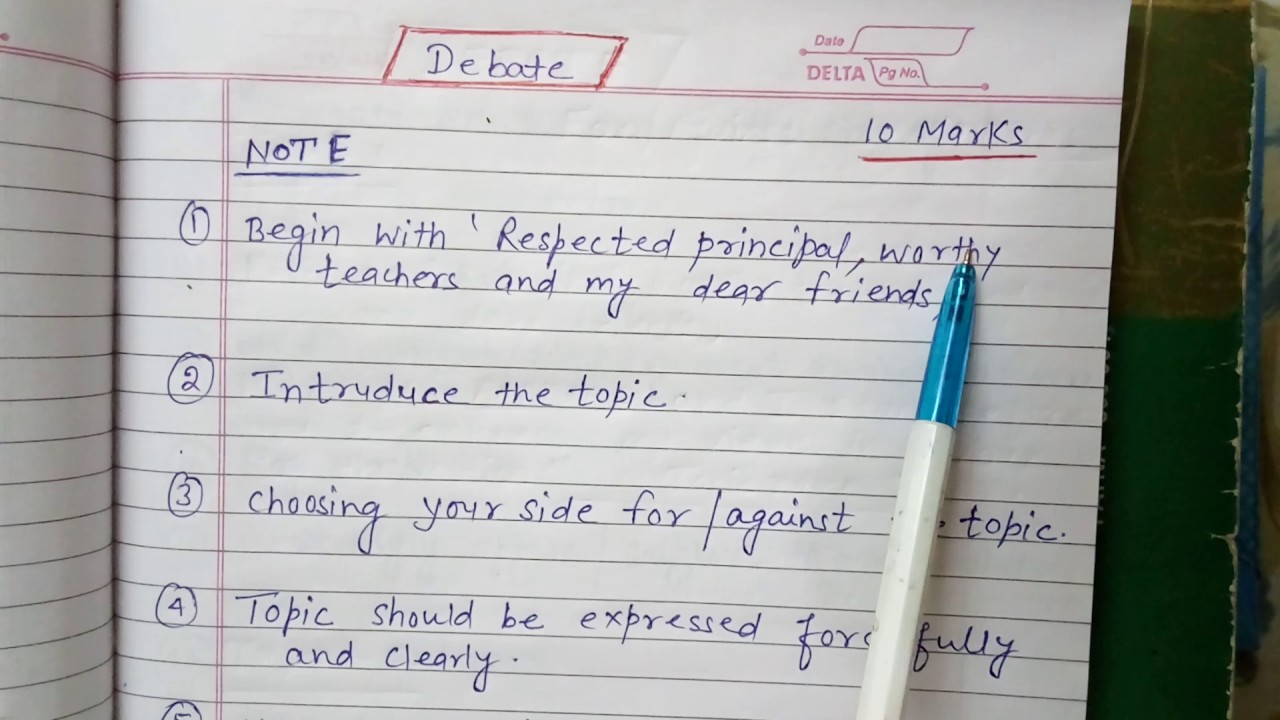 Debate
Date
DELTA Pg No.
10 Marks
NOTE
① Begin with ' Respected principal, worthy
teachers and my dear friends,
② Intruduce the topic.
③ choosing your side for/against topic.
④ Topic should be expressed fully
and clearly.
⑤